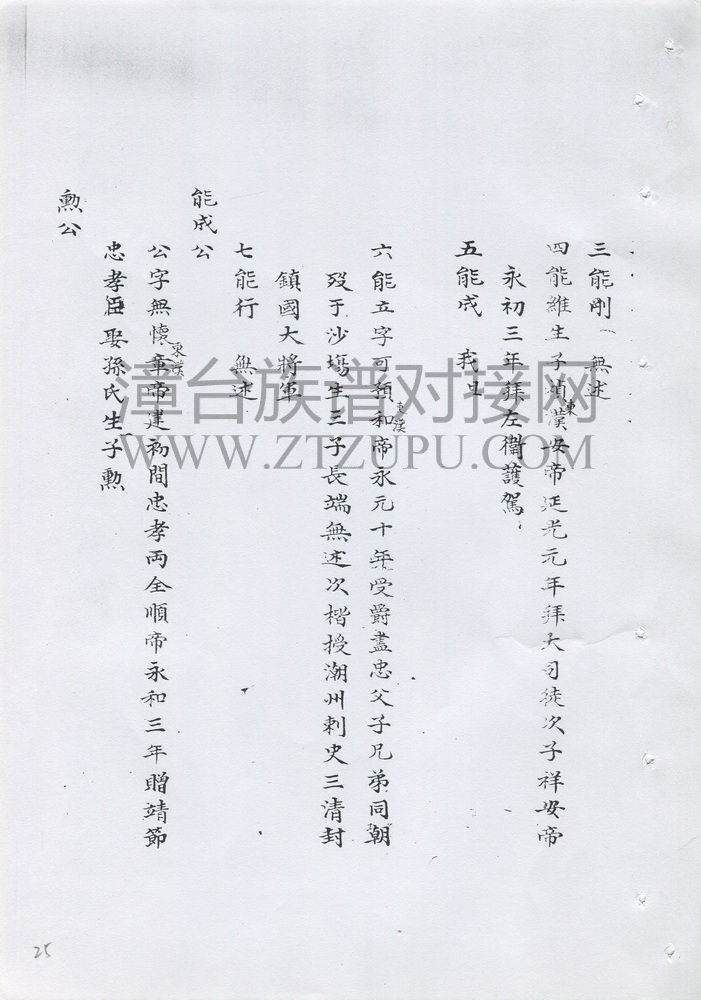 三能剛 無述
四能維生子楨東漢安帝延光元年拜大司徒次子祥安帝
永初三年拜左衛護駕
五能成 我且
六能立字可預東漢和帝永元十年受爵盡忠父子兄弟同朝
歿于沙場生三子長端無述次楷授潮州刺史三清封
鎮國大將軍
七能行 無述
能成公
公字無懷東漢章帝建初間忠孝両全順帝永和三年贈靖節
忠孝侯娶孫氏生子勲
勲公
漳台族谱对接网
WWW.ZTZUPU.COM
25